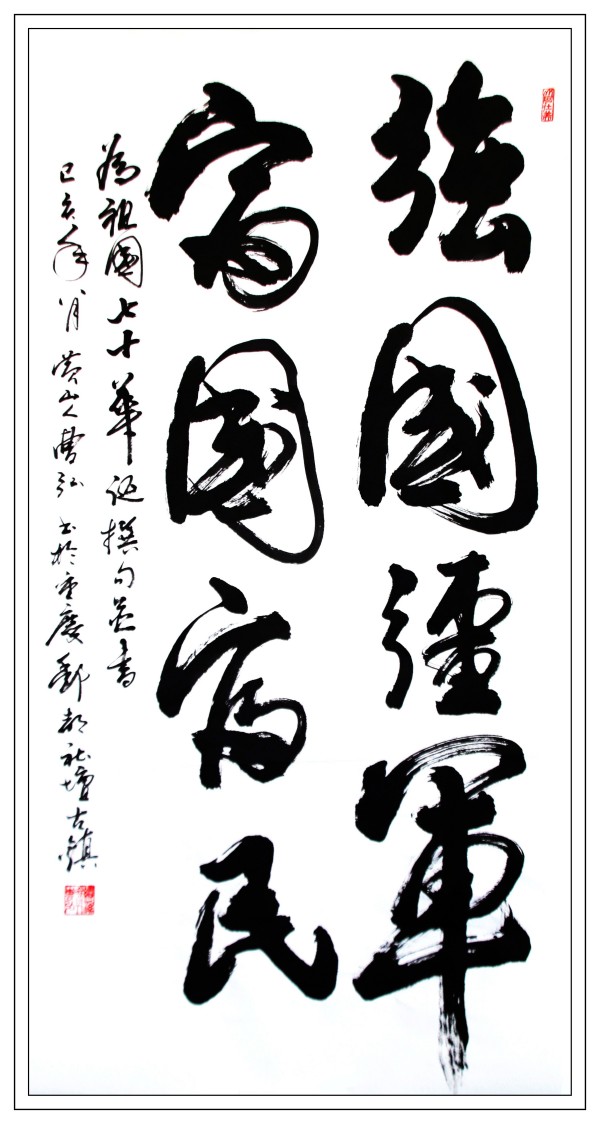 強國彊軍
富國富民
為祖國七十華誕撰句並書
己亥年八月黄山人曹弘書於重慶酆都社壇古鎮